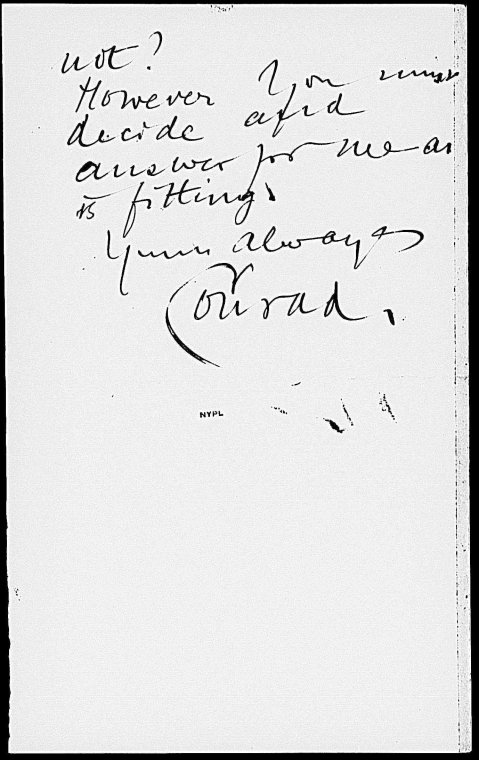 not?
However you must
decide and
answer for me as
is fitting.
Yours always
Conrad.
NYPL